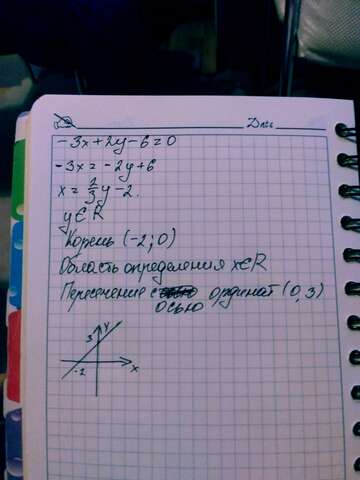 Дата
-3x+2y-6=0
-3x=-2y+6
x=2/3y-2.
y∈R
Корень (-2;0)
Область определения x∈R
Пересечение с ординат (0,3)
осью
y
3
-2
x